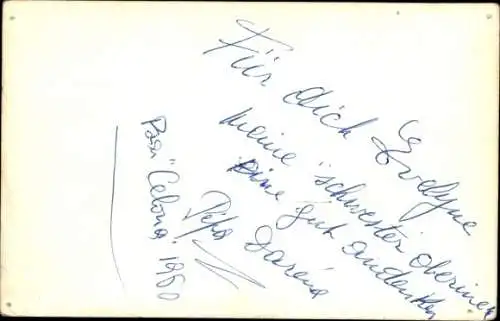 Für dich Evelyne
meine "schwester oberinen
eine gut andenken
Pepa Darena
Barcelona, 1960